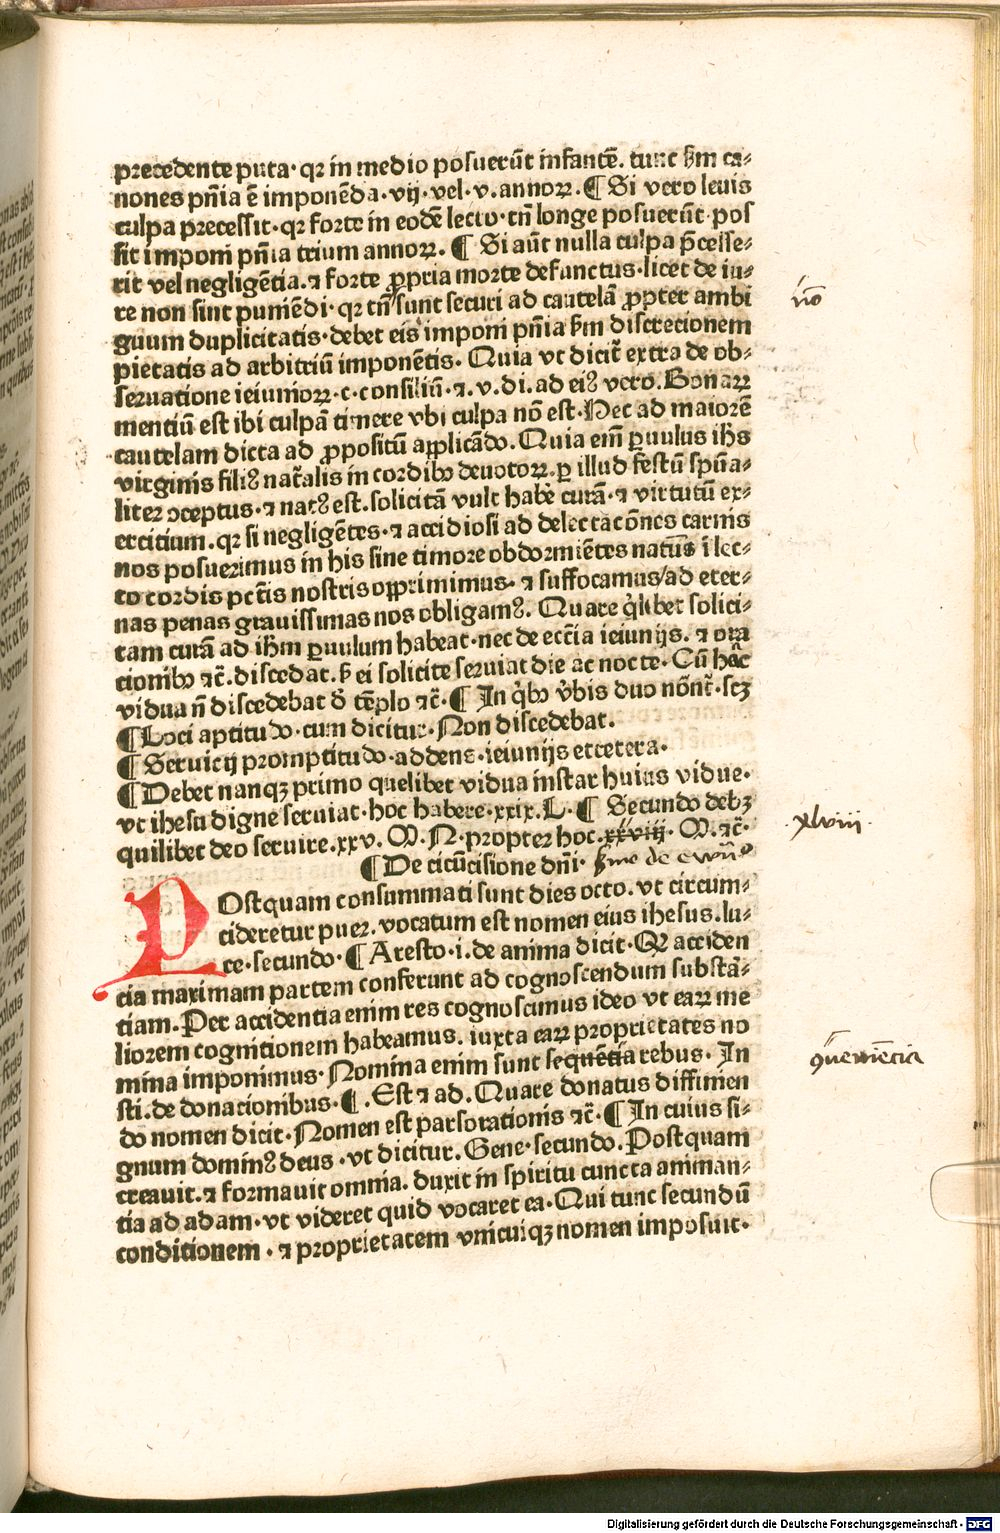 precedente puta· qꝛ in medio posuerūt infantē. tunc ẜm ca⸗
nones pn̄ia ē imponēda· vij· vel· v. annoꝝ. ¶ Si vero leuis
culpa precessit· qꝛ forte in eodē lecto· tn̄ longe posuerūt· pos
sit imponi pn̄ia trium annoꝝ. ¶ Si aūt nulla culpa p̄cesse⸗
rit vel negligētia. ⁊ forte ꝓpria morte defunctus· licet de iu⸗
re non sint puniēdi· qꝛ tn̄ sunt securi ad cautelā ꝓpter ambi
guum duplicitatis· debet eis imponi pn̄ia ẜm discretionem
pietatis ad arbitriū imponētis. Quia vt dicit̄ extra de ob⸗
seruatione ieiunioꝝ· c· consiliū· ⁊. v. di. ad eiꝰ vero. Bonaꝝ
mentiū est ibi culpā timere vbi culpa nō est· Hec ad maiorē
cautelam dicta ad ꝓpositū applicādo. Quia em̄ ꝑuulus ihs̄
virginis filiꝰ nat̄alis in cordibꝰ deuotoꝝ. ꝑ illud festū spūa⸗
liter ↄceptus· ⁊ natꝰ est. solicitā vult habe̅ curā· ⁊ virtutū ex⸗
ercitium. qꝛ si negligētes· ⁊ accidiosi ad delectacōnes carnis
nos posuerimus in his sine timore obdormiētes natūs ī lec⸗
to cordis pctīs nostris opprimimus· ⁊ suffocamus/ad eter⸗
nas penas grauissimas nos obligamꝰ. Quare qͥlibet solici⸗
tam curā ad ihm̄ ꝑuulum habeat· nec de ecc̄ia ieiunijs. ⁊ ora
cionibꝰ ⁊c̄. discedat. ẜ ei solicite seruiat die ac nocte· Cū hāc
vidua n̄ discedebat d̄ tēplo ⁊c̄· ¶ In qͥbꝰ v̄bis duo nōnt̄· scꝫ
¶ Loci aptitudo· cum dicitur· Non discedebat.
¶ Seruicij promptitudo· addens· ieiunijs etcetera·
¶ Debet nanqꝫ primo quelibet vidua instar huius vidue·
vt ihesu digne seruiat· hoc habere· xxix. L· ¶ Secundo debꝫ
quilibet deo seruire. xxv. M. N· propter hoc. xxviij· M. ⁊c̄·
¶ De circūcisione dn̄i·
POstquam consummati sunt dies octo. vt circum⸗
cideretur puer. vocatum est nomen eius ihesus. lu⸗
ce· secundo· ¶ Aresto· i. de anima dicit· Qꝛ acciden
cia maximam partem conferunt ad cognoscendum substā⸗
tiam. Per accidentia enim res cognoscimus ideo vt eaꝝ me
liorem cognitionem habeamus. iuxta eaꝝ proprietates no
mina imponimus· Nomina enim sunt sequētia rebus· In
sti. de donacionibus· ¶. Est ⁊ ad. Quare donatus diffinien
do nomen dicit· Nomen est pars orationis ⁊c̄· ¶ In cuius si⸗
gnum dominꝰ deus· vt dicitur. Gene· secundo. Postquam
creauit. ⁊ formauit omnia. duxit in spiritu cuncta animan⸗
tia ad adam· vt videret quid vocaret ea· Qui tunc secundū
conditionem· ⁊ proprietatem vnicuiqꝫ nomen imposuit·
nō
xlviii·
ꝯueniēcia
Digitalisierung gefördert durch die Deutsche Forschungsgemeinschaft - DFG